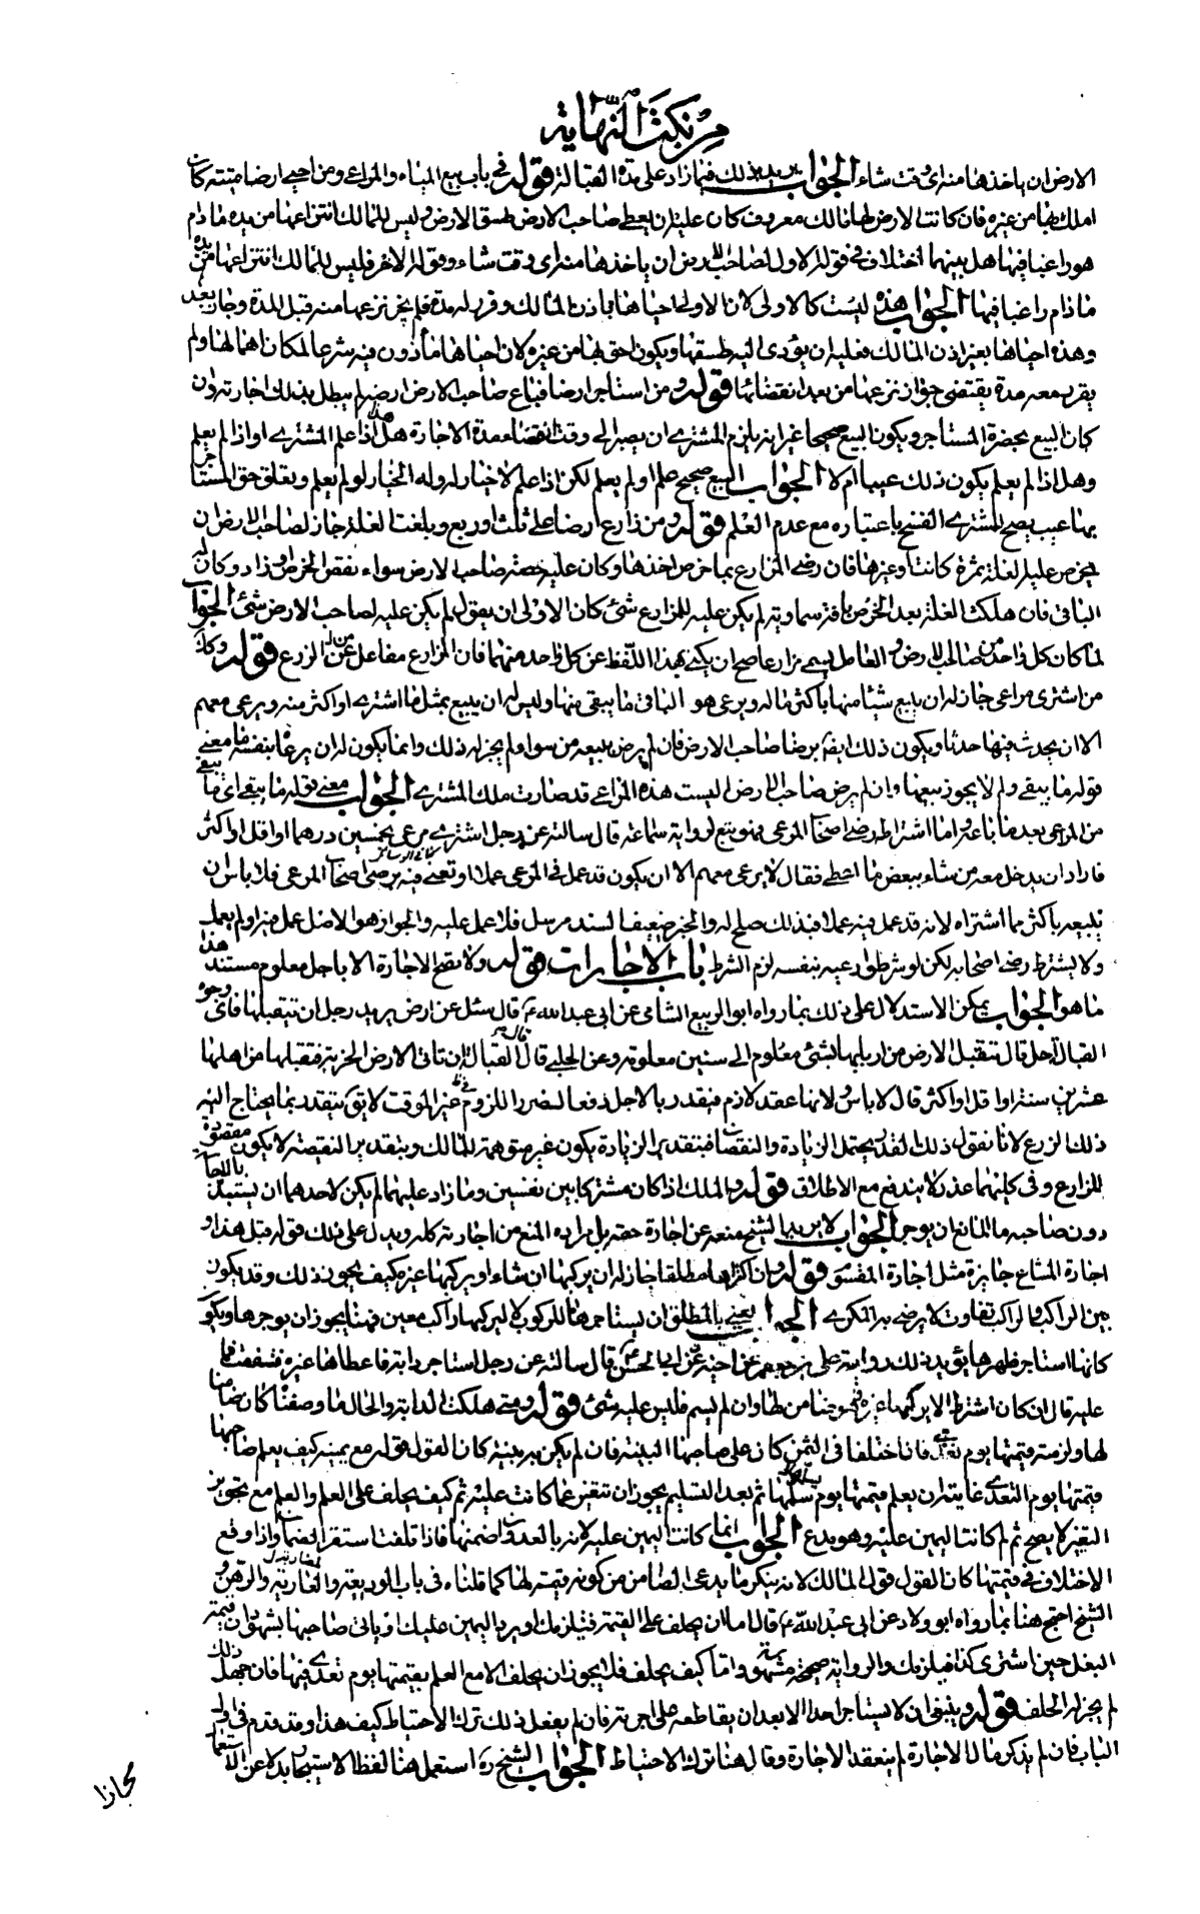 من نكت النهاية
الارض ان ياخذها منه اى وقت شاء الجواب يريد بذلك فيما زاد على مدة القبالة قوله فى باب بيع المياه والمراعى ومن احيى ارضا ميتة كان
املك بها من غيره فان كانت الارض لها مالك معروف كان عليه ان يعطى صاحب الارض طسق الارض وليس للمالك انتزاعها من يده مادام
هو راغبا فيها هل بينهما اختلاف فى قوله الاول لصاحب الارض ان ياخذها منه اى وقت شاء وقوله الاخر فليس للمالك انتزاعها من يده
مادام راغبا فيها الجواب هذه ليست كالاولى لان الاولى احياها باذن المالك وقرر له مدة فلم يجز نزعها منه قبل المدة وجاز بعد
وهذه احياها بغير اذن المالك فعليه ان يؤدى اليه طسقها ويكون احق بها من غيره لان احياها ماذون فيه شرعا لمكان اهمالها ولم
يقرر معه مدة يقتضى جواز نزعها من بعد انقضائها قوله ومن استاجر ارضا فباع صاحب الارض ارضه لم يبطل بذلك اجارته وان
كان البيع بحضرة المستاجر ويكون البيع صحيحا غير انه يلزم المشترى ان يصبر الى وقت انقضاء مدة الاجارة هل هذا اذا علم المشترى او اذا لم يعلم
وهل اذا لم يعلم يكون ذلك عيبا ام لا الجواب البيع صحيح علم او لم يعلم لكن اذا علم لا خيار له وله الخيار لو لم يعلم وتعلق حق المستاجر
بها عيب يصح للمشترى الفسخ باعتباره مع عدم العلم قوله ومن زارع ارضا على ثلث او ربع وبلغت الغلة جاز لصاحب الارض ان
يخرص عليه الغلة ثمرة كانت او غيرها فان رضى المزارع بما خرص اخذها وكان عليه حصة صاحب الارض سواء نقص الخرص او زاد وكان له
الباقى فان هلكت الغلة بعد الخرص بافة سماوية لم يكن عليه للمزارع شئ كان الاولى ان يقول لم يكن عليه لصاحب الارض شئ الجواب
لما كان كل واحد من صاحب الارض و العامل يسمى مزارعا صح ان يكنى بهذا اللفظ عن كل واحد منهما فان المزارع مفاعل من الزرع قوله وكل
من اشترى مراعى جاز له ان يبيع شيئا منها باكثر ماله ويرعى هو الباقى ما يبقى منها وليس له ان يبيع بمثل ما اشترى او اكثر منه ويرعى معهم
الا ان يحدث فيها حدثا ويكون ذلك ايضا برضا صاحب الارض فان لم يرض ببيعه من سواه لم يجز له ذلك وانما يكون له ان يرعاه بنفسه ما معنى
قوله ما يبقى ولم لا يجوز بيعها وان لم يرض صاحب الارض اليست هذه المراعى قد صارت ملك المشترى الجواب معنى قوله ما يبقى اى ما يبقى
من المرعى بعد ما باعه واما اشتراط رضى اصحاب المرعى فهو يتبع لرواية سماعة قال سالته عن رجل اشترى مرعى بخمسين درهما او اقل او اكثر
فاراد ان يدخل معه من شاء ببعض ما اعطى فقال لا يرعى معهم الا ان يكون قد عمل فى المرعى عملا او تعنى فيه برضى اصحاب المرعى فلا باس ان
يبيعه باكثر مما اشتراه لانه قد عمل فيه عملا فبذلك صلح له والخبر ضعيف السند مرسل فلا عمل عليه والجواز هو الاصل عمل فيه او لم يعمل
ولا يشترط رضى اصحابه لكن لو شرطوا رعيه بنفسه لزم الشرط باب الاجارات قوله ولا تصح الاجارة الا باجل معلوم مستند هذا
ما هو الجواب يمكن الاستدلال على ذلك بما رواه ابو الربيع الشامى عن ابى عبد الله ع قال سئل عن ارض يريد رجل ان يتقبلها فاى وجوه
القبالة احل قال تتقبل الارض من اربابها بشئ معلوم الى سنين معلومة وعن الحلبى قال القبالة ان تاتى الارض الخربة فتقبلها من اهلها
عشرين سنة او اقل او اكثر قال لا باس ولانها عقد لازم فيتقدر بالاجل دفعا لضرر اللزوم فى غير الموقت لا يق يتقدر بما يحتاج اليه
ذلك الزرع لانا نقول ذلك القدر يحتمل الزيادة والنقصان فبتقدير الزيادة يكون غير متوقعة للمالك وبتقدير النقيصة لا يكون مقصودة
للمزارع وفى كليهما عذر لا يندفع مع الاطلاق قوله والملك اذا كان مشتركا بين نفسين وما زاد عليهما لم يكن لاحدهما ان يستبد بالايجار
دون صاحبه ما المانع ان يوجر الجواب لا يريد الشيخ منعه عن اجارة حقه بل مراده المنع من اجارته كله ويدل على ذلك قوله قبل هذا و
اجارة المشاع جايزة مثل اجارة المقسوم قوله وان اكراها مطلقا جاز له ان يركبها ان شاء او يركبها غيره كيف يجوز ذلك وقد يكون
بين الراكب والراكب تفاوت لا يرضى به المكرى الجواب يعنى بالمطلق ان يستاجرها للركوب لا ليركبها راكب معين فهنا يجوز ان يوجرها ويكون
كانما استاجر ظهرها يؤيد ذلك رواية على بن جعفر عن اخيه ابى الحسن ع قال سالته عن رجل استاجر دابة فاعطاها غيره فنفقت فما
عليه قال ان كان اشترط الا يركبها غيره فهو ضامن لها وان لم يسم فليس عليه شئ قوله ومتى هلكت الدابة والحال ما وصفناه كان ضامنا
لها ولزمته قيمتها يوم تعدى فان اختلفا فى الثمن كان على صاحبها البينة فان لم يكن له بينة كان القول قوله مع يمينه كيف يعلم صاحبها
قيمتها يوم التعدى غايته ان يعلم قيمتها يوم سلمها ثم بعد التسليم يجوز ان تتغير عما كانت عليه ثم كيف يحلف على العلم والعلم مع تجويز
التغير لا يصح ثم لم كانت اليمين عليه وهو يدع الجواب انما كانت اليمين عليه لانه بالعدوان ضمنها فاذا تلفت استقر الضمان واذا وقع
الاختلاف فى قيمتها كان القول قول المالك لانه ينكر ما يدعى الضامن من كونه قيمة لها كما قلناه فى باب الوديعة والعارية والرهن و
الشيخ احتج هنا بما رواه ابو ولاد عن ابى عبد الله ع قال اما ان يحلف على القيمة فيلزمك او يرد اليمين عليك او ياتى صاحبها بشهود ان قيمة
البغل حين اشترى كذا فيلزمك والرواية صحيحة مشهورة واما كيف يحلف فلا يجوز ان يحلف الا مع العلم بقيمتها يوم تعدى فيها فان جهل ذلك
لم يجز له الحلف قوله وينبغى ان لا يستاجر احدا الا بعد ان يقاطعه على اجرته فان لم يفعل ذلك ترك الاحتياط كيف هذا وقد قدم فى اول
الباب فان لم يذكر مال الاجارة لم ينعقد الاجارة وقال هنا ترك الاحتياط الجواب الشيخ ره استعمل هنا لفظ الاستيجار بدلا عن الاستعمال
مجازا